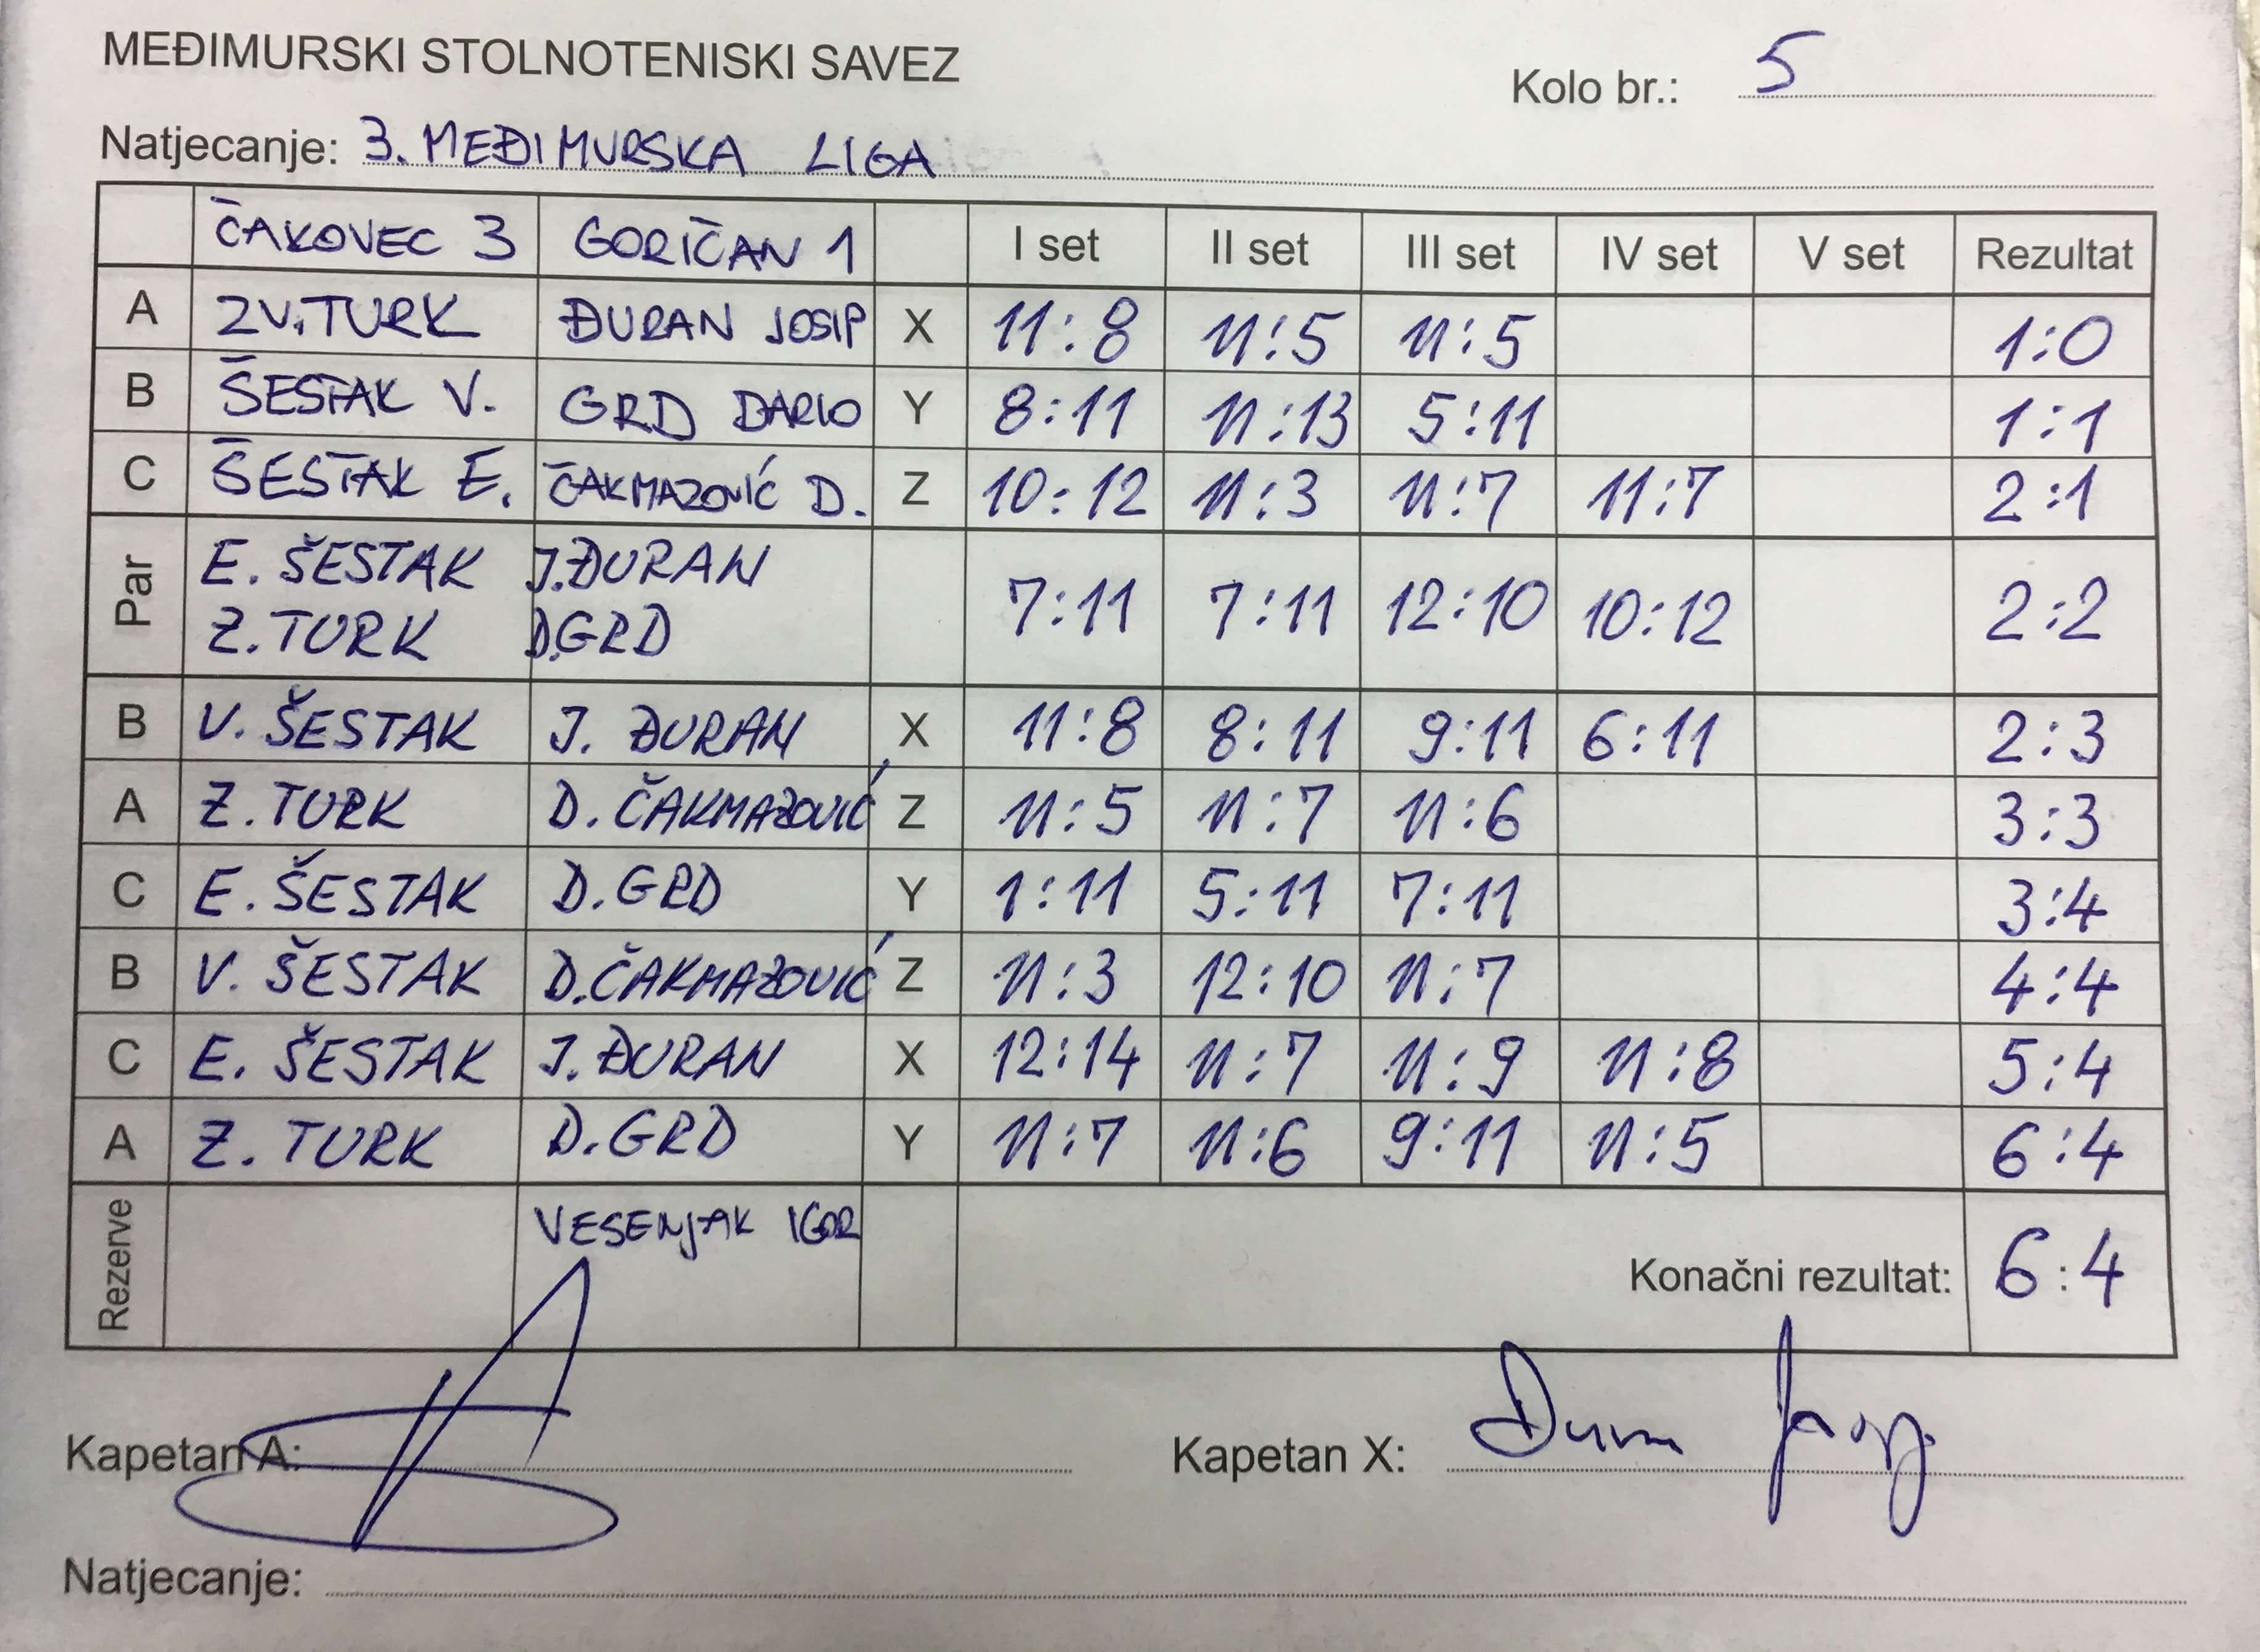 MEĐIMURSKI STOLNOTENISKI SAVEZ
Kolo br.: 5
Natjecanje: 3. MEĐIMURSKA LIGA
ČAKOVEC 3 GORIČAN 1 I set II set III set IV set V set Rezultat
A ZV. TURK ĐURAN JOSIP X 11:8 11:5 11:5 1:0
B ŠESTAK V. GRD DARIO Y 8:11 11:13 5:11 1:1
C ŠESTAK E. ČAKMAZOVIĆ D. Z 10:12 11:3 11:7 11:7 2:1
Par E. ŠESTAK J. ĐURAN 7:11 7:11 12:10 10:12 2:2
Z. TURK D. GRD
B V. ŠESTAK J. ĐURAN X 11:8 8:11 9:11 6:11 2:3
A Z. TURK D. ČAKMAZOVIĆ Z 11:5 11:7 11:6 3:3
C E. ŠESTAK D. GRD Y 1:11 5:11 7:11 3:4
B V. ŠESTAK D. ČAKMAZOVIĆ Z 11:3 12:10 11:7 4:4
C E. ŠESTAK J. ĐURAN X 12:14 11:7 11:9 11:8 5:4
A Z. TURK D. GRD Y 11:7 11:6 9:11 11:5 6:4
Rezerve VESENJAK IGOR
Konačni rezultat: 6:4
Kapetan A:
Kapetan X:
Natjecanje: